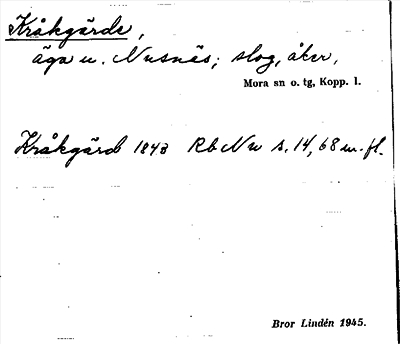 Kråkgärde,
äga u. Nusnäs; slog, åker,
Mora sn o. tg, Kopp. l.
Kråkgärd 1843 Rb Nu s. 14, 68 m. fl.
Bror Lindén 1945.